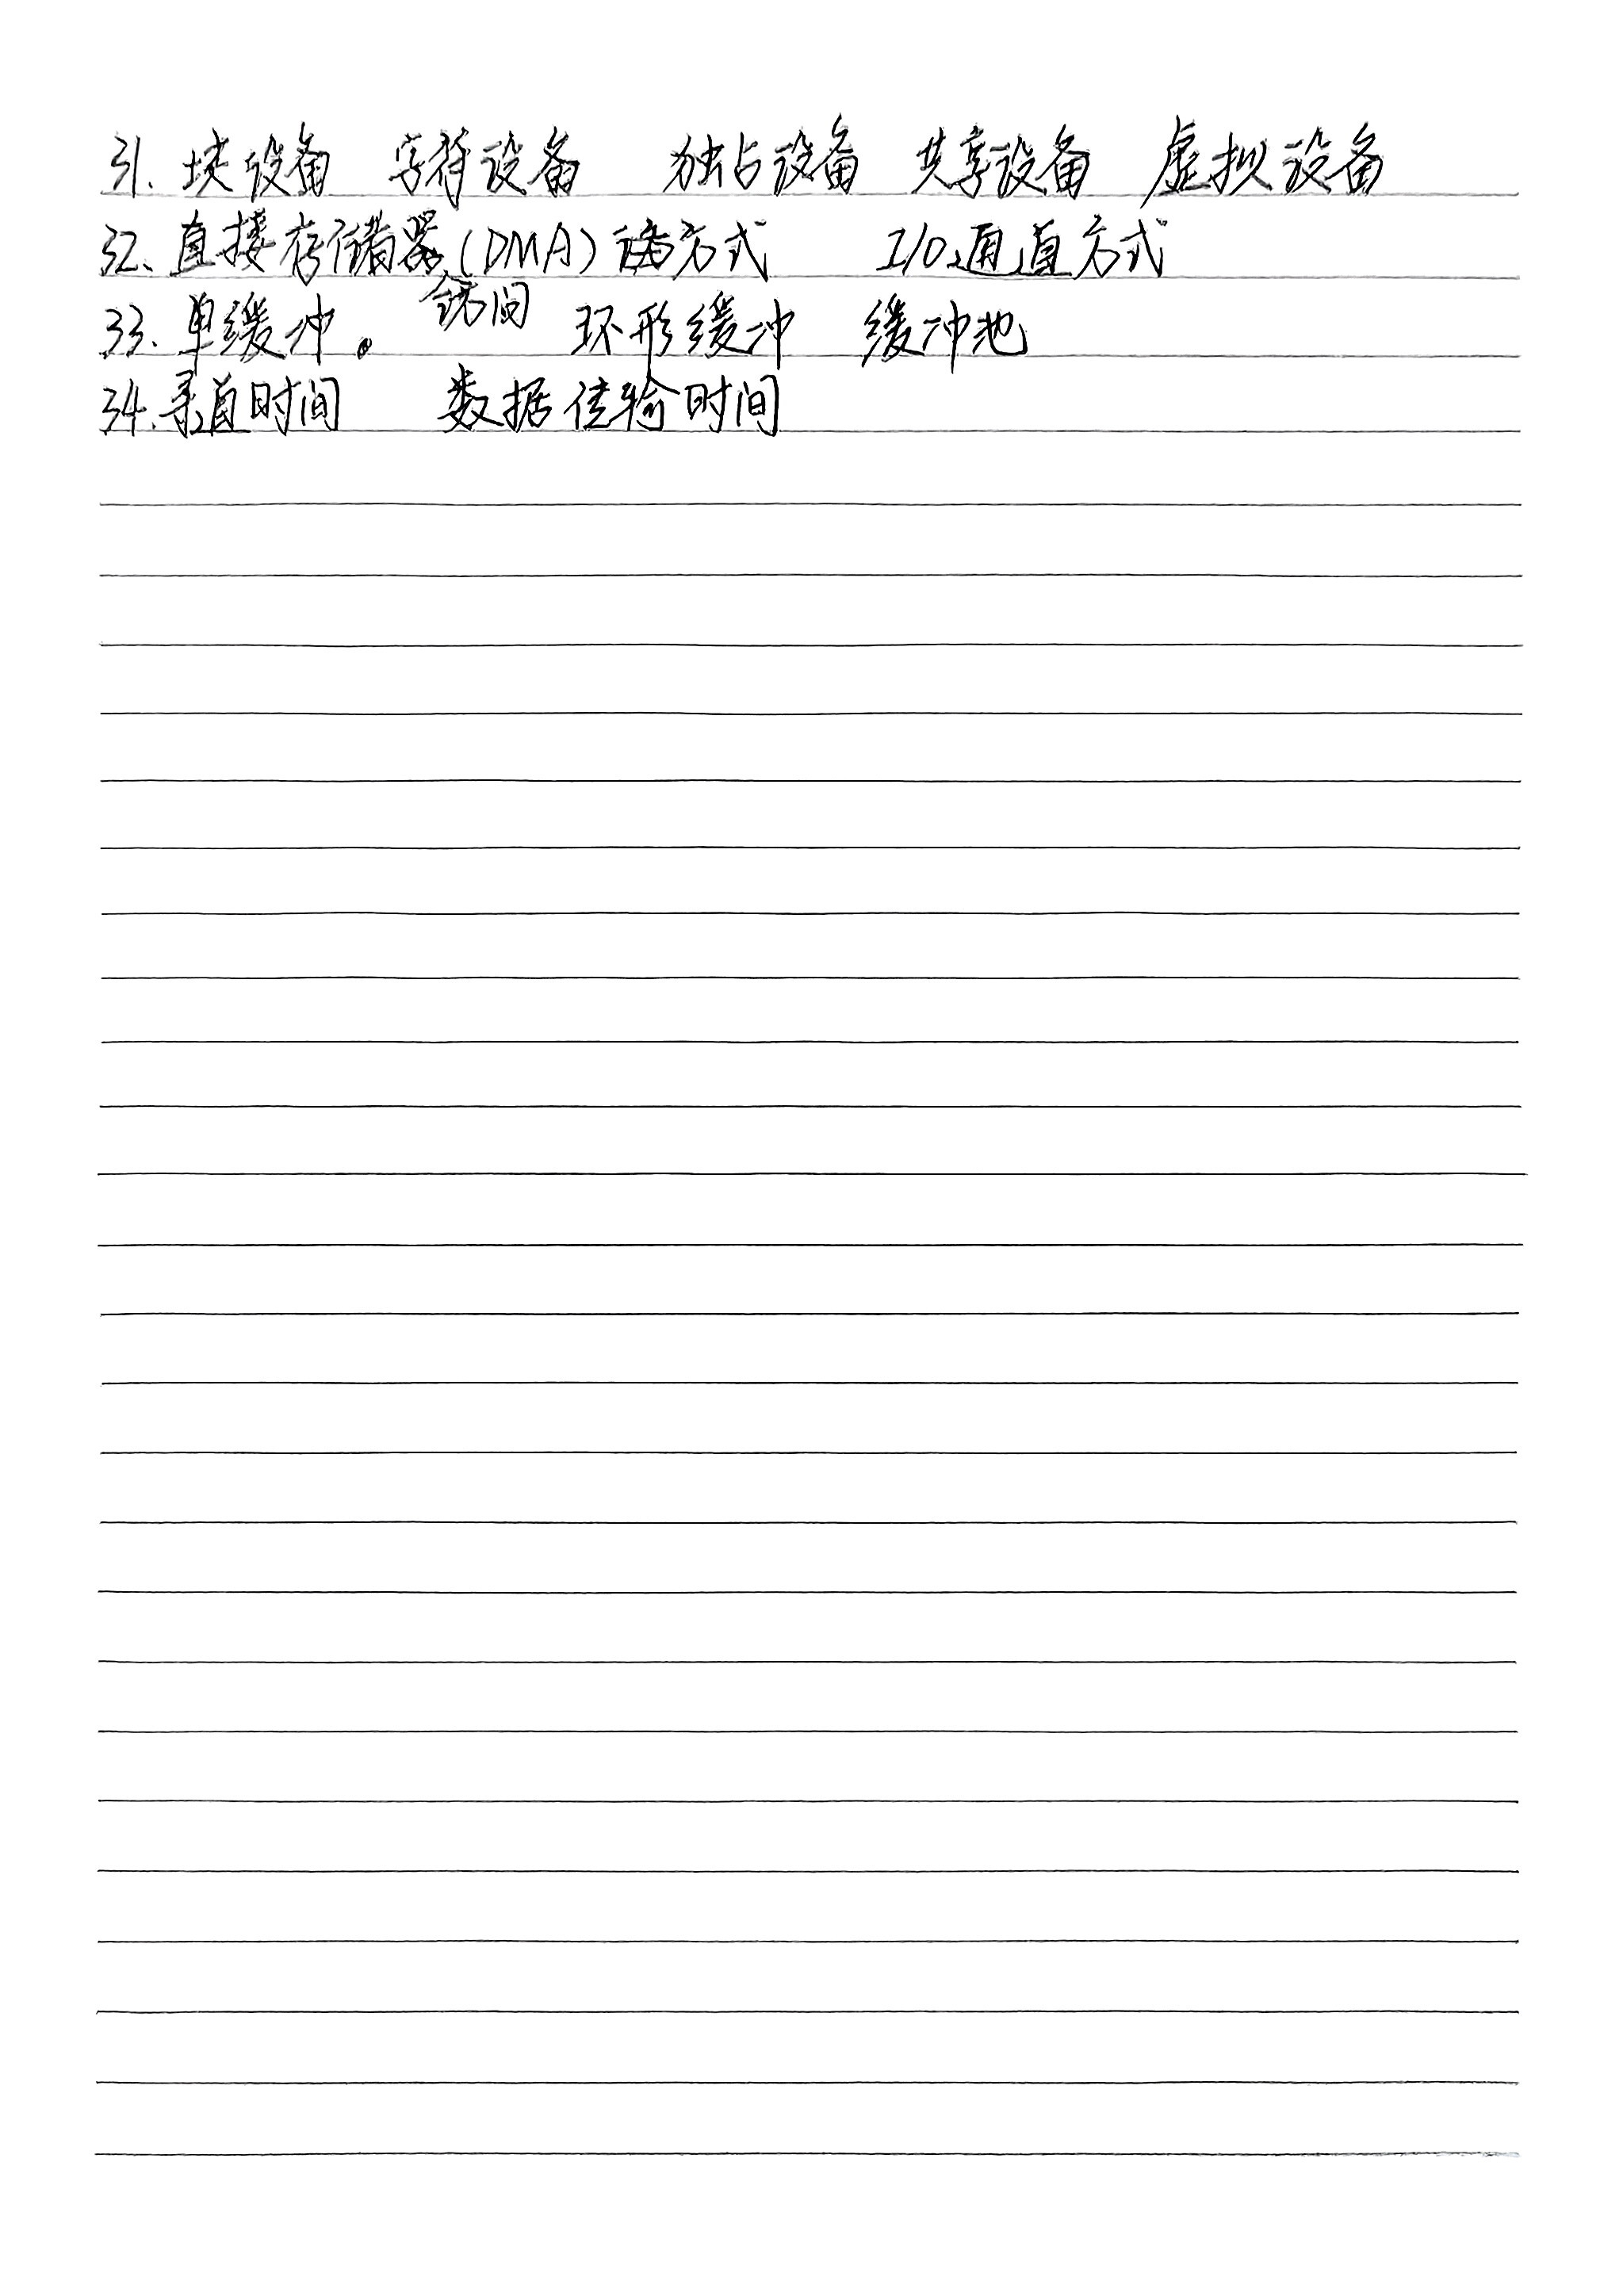 31. 块设备 字符设备 独占设备 共享设备 虚拟设备
32、直接存储器(DMA)方式 I/O通道方式
33、单缓冲。 环形缓冲 缓冲池
34.寻道时间 数据传输时间